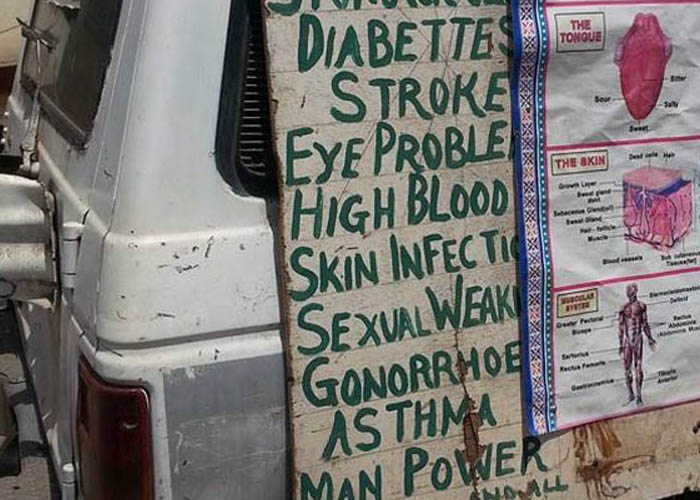 DIABETTES
STROKE
EYE PROBLE
HIGH BLOOD
SKIN INFECTIO
SEXUAL WEAK
GONORRHOE
ASTHMA
MAN POWER
AND ALL
THE
TONGUE
Bitter
Sour
Salty
Sweet
THE SKIN
Dead cells
Hair
Growth Layer
Sweat gland
duct
Sebaceous Gland(oil)
Sweat Gland
Hair - follicle
Muscle
Blood vessels
Sub cutaneous
Tissue(fat)
MUSCULAR
SYSTEM
Sternocleidomas
Deltoid
Greater Pectoral
Biceps
Rectus
Abdominal
Sartorius
Rectus Femoris
Gastrocnemius
Tibialis
Anterior